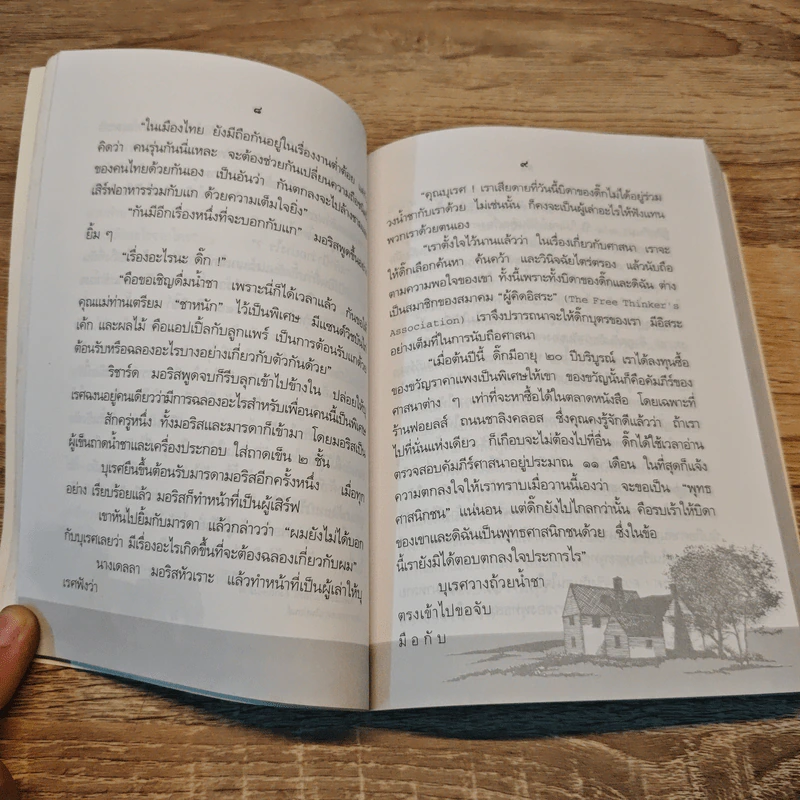 ๘
"ในเมืองไทย ยังมีถือกันอยู่ในเรื่องงานต่ำต้อย
คิดว่า คนรุ่นกันนี่แหละ จะต้องช่วยกันเปลี่ยนความ
ของคนไทยด้วยกันเอง เป็นอันว่า กันตกลงจะไปล้าง
เสิร์ฟอาหารร่วมกับแก ด้วยความเต็มใจยิ่ง"
"กันมีอีกเรื่องหนึ่งที่จะบอกกับแก" มอริสพูดขึ้น
ยิ้ม ๆ
"เรื่องอะไรนะ ดิ๊ก !"
"คือขอเชิญดื่มน้ำชา เพราะนี่ก็ได้เวลาแล้ว
คุณแม่ท่านเตรียม "ชาหนัก" ไว้เป็นพิเศษ มีแซนด์วิช
เค้ก และผลไม้ คือแอปเปิ้ลกับลูกแพร์ เป็นการต้อนรับแกด้วย
ต้อนรับหรือฉลองอะไรบางอย่างเกี่ยวกับตัวกันด้วย"
ริชาร์ด มอริสพูดจบก็รีบลุกเข้าไปข้างใน ปล่อยให้บุ
เรศฉงนอยู่คนเดียวว่ามีการฉลองอะไรสำหรับเพื่อนคนนี้เป็นพิเศษ
สักครู่หนึ่ง ทั้งมอริสและมารดาก็เข้ามา โดยมอริสเป็น
ผู้เข็นถาดน้ำชาและเครื่องประกอบ ใส่ถาดเข็น ๒ ชั้น
บุเรศยืนขึ้นต้อนรับมารดามอริสอีกครั้งหนึ่ง เมื่อทุก
อย่าง เรียบร้อยแล้ว มอริสก็ทำหน้าที่เป็นผู้เสิร์ฟ
เขาหันไปยิ้มกับมารดา แล้วกล่าวว่า "ผมยังไม่ได้บอก
กับบุเรศเลยว่า มีเรื่องอะไรเกิดขึ้นที่จะต้องฉลองเกี่ยวกับผม"
นางเดลลา มอริสหัวเราะ แล้วทำหน้าที่เป็นผู้เล่าให้บุ
เรศฟังว่า
๙
"คุณบุเรศ ! เราเสียดายที่วันนี้บิดาของดิ๊กไม่ได้อยู่ร่วม
วงน้ำชากับเราด้วย ไม่เช่นนั้น ก็คงจะเป็นผู้เล่าอะไรให้ฟังแทน
พวกเราด้วยตนเอง
"เราตั้งใจไว้นานแล้วว่า ในเรื่องเกี่ยวกับศาสนา เราจะ
ให้ดิ๊กเลือกค้นหา ค้นคว้า และวินิจฉัยไตร่ตรอง แล้วนับถือ
ตามความพอใจของเขา ทั้งนี้เพราะทั้งบิดาของดิ๊กและดิฉัน ต่าง
เป็นสมาชิกของสมาคม "ผู้คิดอิสระ" (The Free Thinker's
Association) เราจึงปรารถนาจะให้ดิ๊กบุตรของเรา มีอิสระ
อย่างเต็มที่ในการนับถือศาสนา
"เมื่อต้นปีนี้ ดิ๊กมีอายุ ๒๐ ปีบริบูรณ์ เราได้ลงทุนซื้อ
ของขวัญราคาแพงเป็นพิเศษให้เขา ของขวัญนั้นก็คือคัมภีร์ของ
ศาสนาต่าง ๆ เท่าที่จะหาซื้อได้ในตลาดหนังสือ โดยเฉพาะที่
ร้านฟอยลส์ ถนนชาลิงคลอส ซึ่งคุณคงรู้จักดีแล้วว่า ถ้าเรา
ไปที่นั่นแห่งเดียว ก็เกือบจะไม่ต้องไปที่อื่น ดิ๊กได้ใช้เวลาอ่าน
ตรวจสอบคัมภีร์ศาสนาอยู่ประมาณ ๑๑ เดือน ในที่สุดก็แจ้ง
ความตกลงใจให้เราทราบเมื่อวานนี้เองว่า จะขอเป็น "พุทธ
ศาสนิกชน" แน่นอน แต่ดิ๊กยังไปไกลกว่านั้น คือรบเร้าให้บิดา
ของเขาและดิฉันเป็นพุทธศาสนิกชนด้วย ซึ่งในข้อ
นี้เรายังมิได้ตอบตกลงใจประการไร"
บุเรศวางถ้วยน้ำชา
ตรงเข้าไปขอจับ
มือกับ